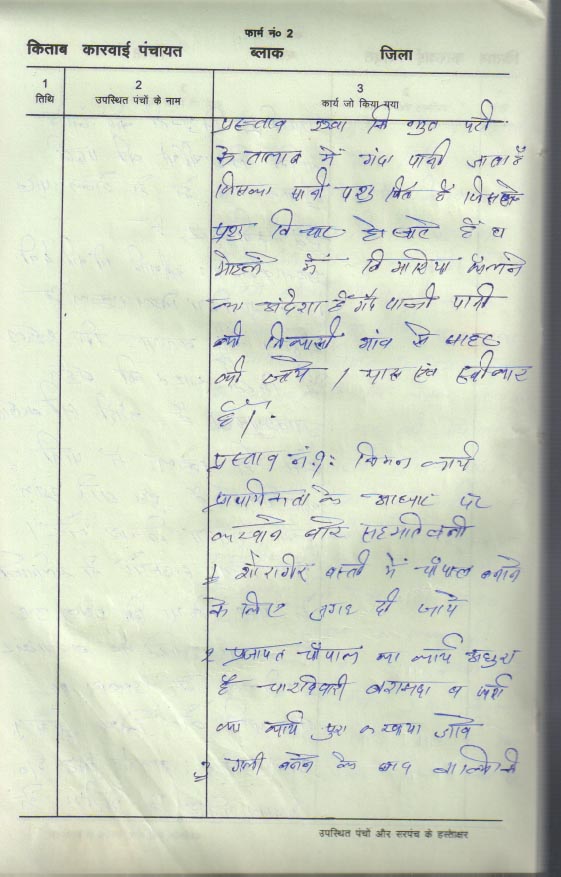 फार्म नं० 2
किताब कारवाई पंचायत ब्लाक जिला
1 2 3
तिथि उपस्थित पंचों के नाम कार्य जो किया गया
प्रस्ताव रखा कि
के तालाब में गंदा पानी जाता है
जिसका पानी पशु पिते है जिससे
पशु बिमार हो जाते हैं व
मोहल्ले में बिमारिया फैलने
का अंदेशा हैं गंदे पानी
की निकासी गांव से बाहर
की जाये / पास एवं स्वीकार
है /:
प्रस्ताव नं. निम्न कार्य
प्राथमिकता के आधार पर
करवाने बारे सहमति बनी
1 बस्ती में चौपाल बनाने
के लिए जगह दी जाये
2 प्रजापत चौपाल का कार्य अधुरा
है चारदिवारी बरामदा व फर्श
का कार्य पुरा करवाया जावे
3 गली बनने के बाद
उपस्थित पंचों और सरपंच के हस्ताक्षर